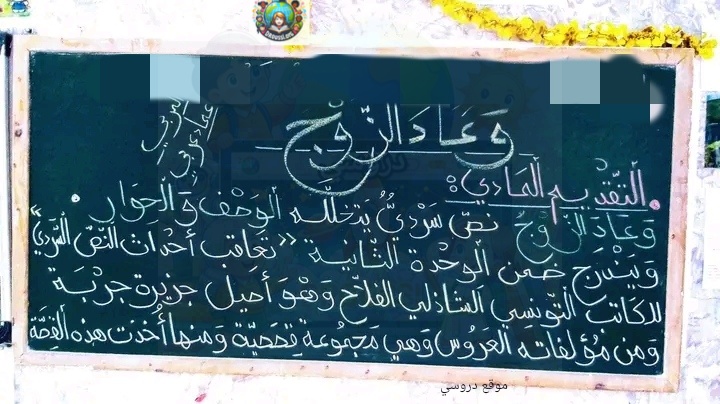 وَعَادَ الزَّوْجُ
التَّقْدِيم الْمَادِي:
وَعَادَ الزَّوْجُ نصّ سَرْدِيٌّ يَتَخَلَّلُه الوَصْف وَالْحِوَار.
وَيَنْدَرِج ضمن الْوحْدة الثَّانية «تعاقب أحْدَاث النّصّ السَّرْدِيّ»
للكاتب التّونسي الشاذلي الفلاّح وَهْوَ أصيل جزيرة جرْبَة
وَمِن مُؤلفاته العَرُوس وَهي مَجمُوعة قِصَصِيّة وَمنها أُخذَت هذه القِصّة
موقع دروسي